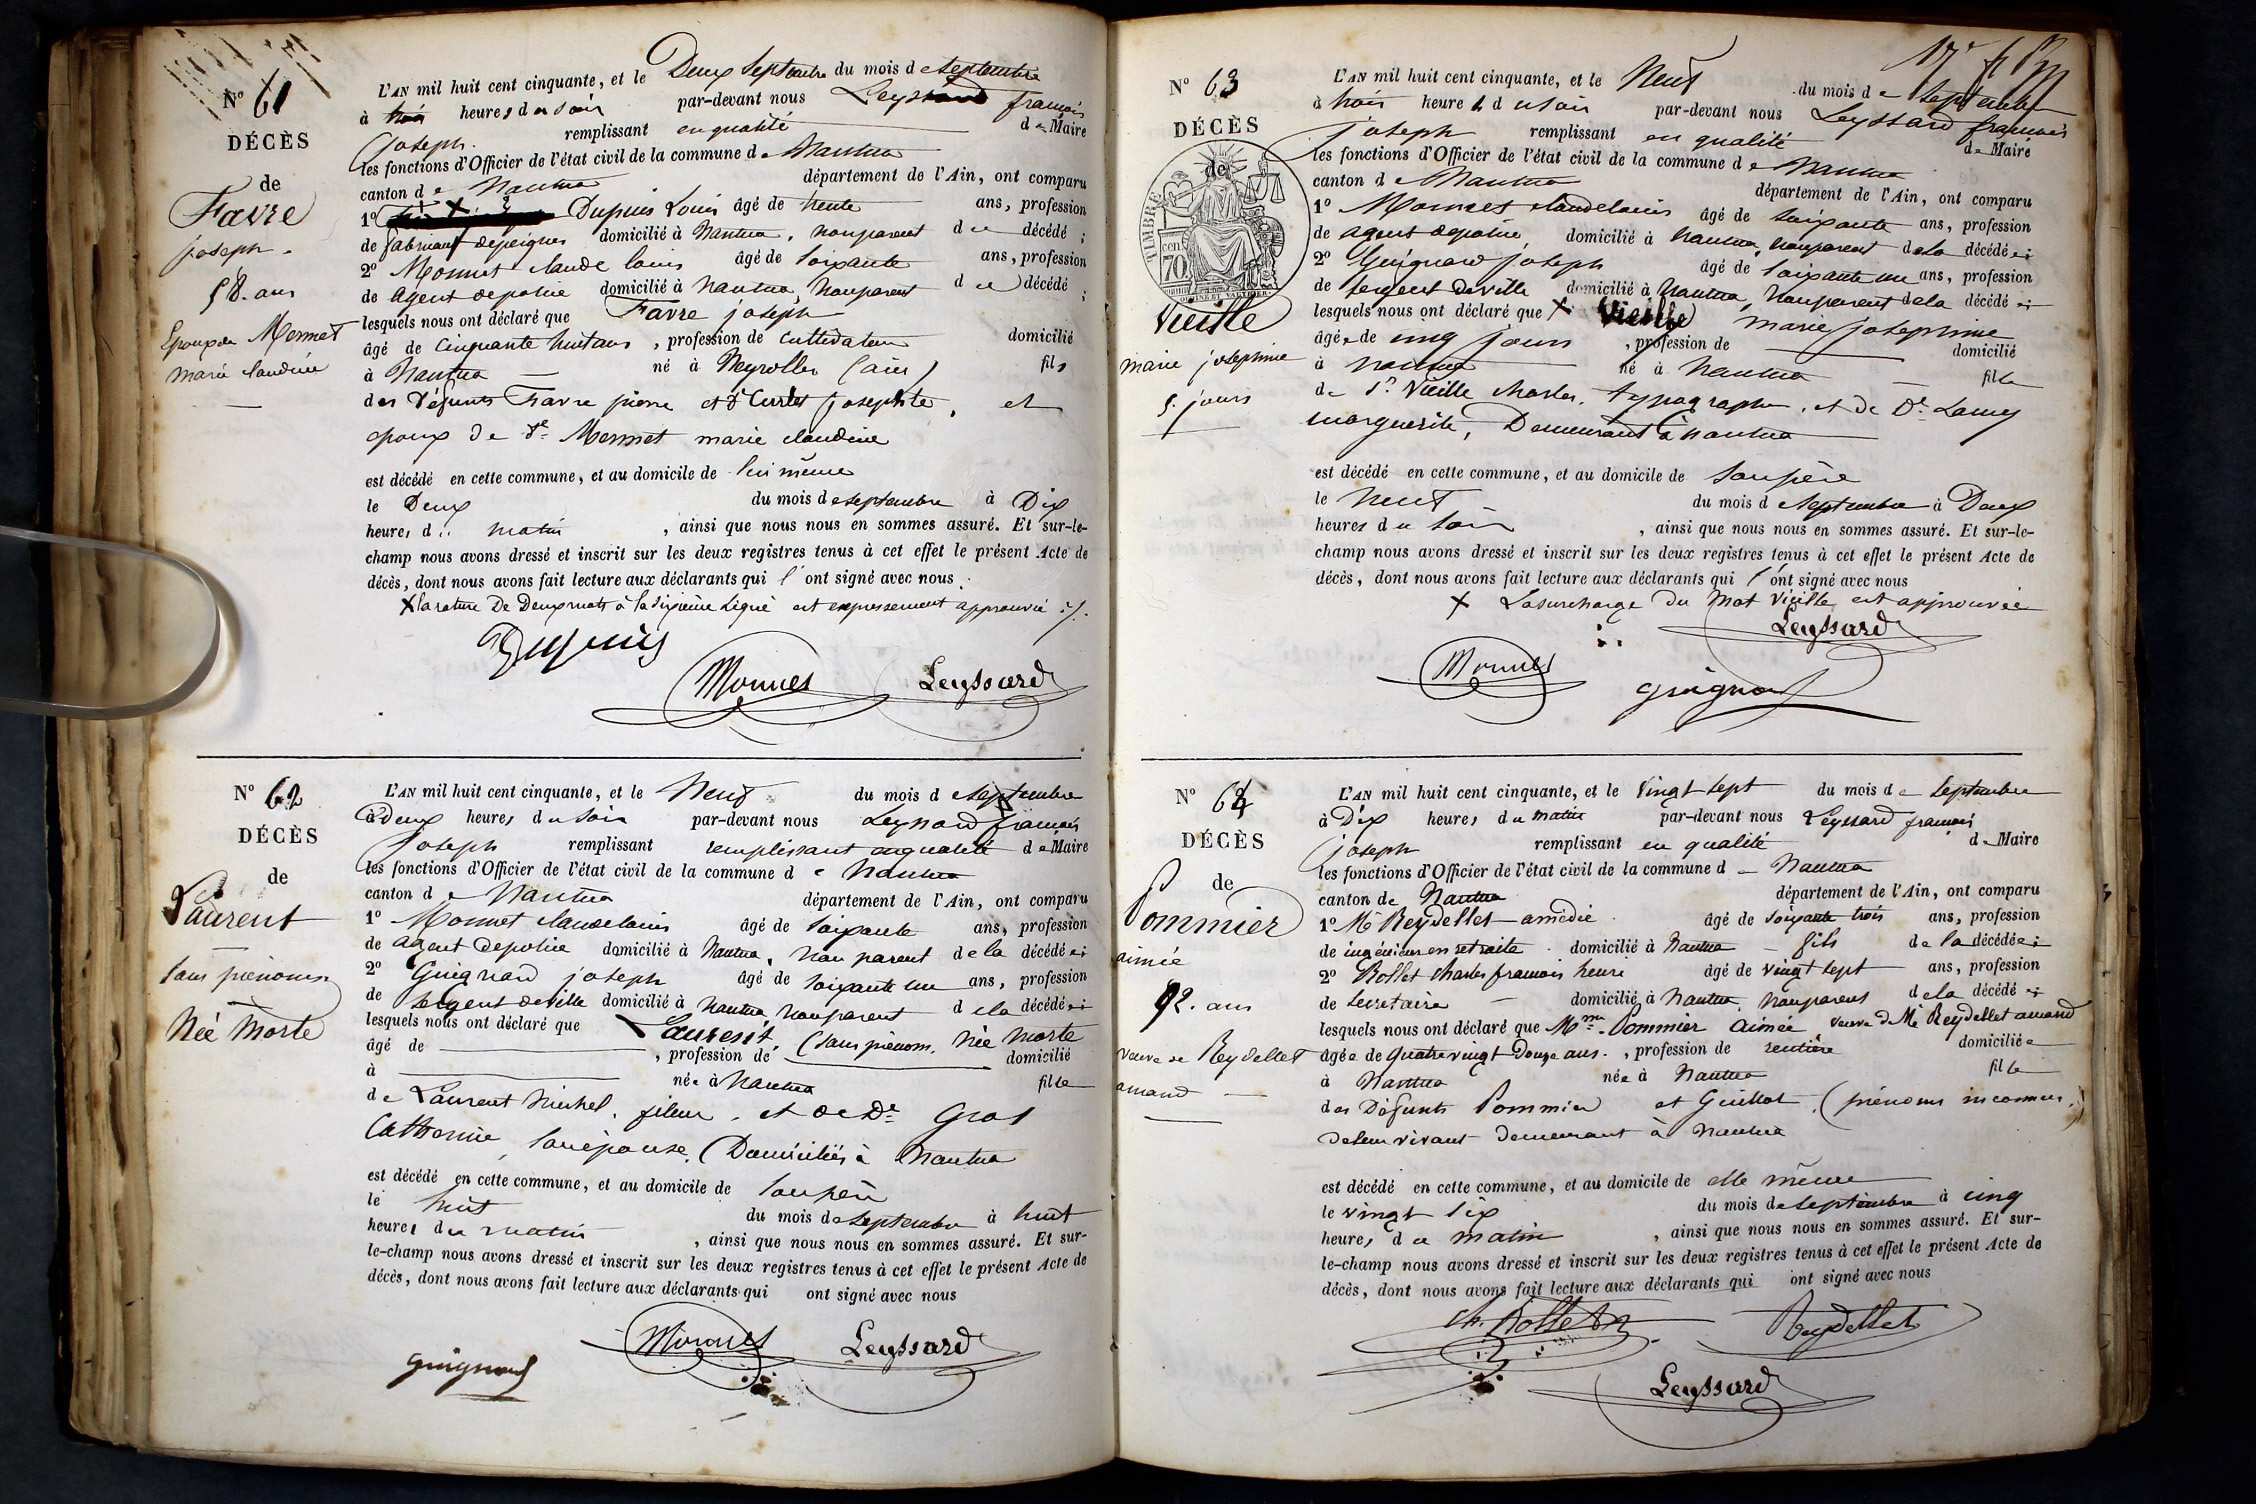 N° 61
DÉCÈS
de
Favre
joseph.
58. ans
Epoux de Mermet
marie claudine
L'AN mil huit cent cinquante, et le Deux Septembre du mois de Septembre
à trois heures du soir par-devant nous Leyssard françois
joseph. remplissant en qualité de Maire
les fonctions d'Officier de l'état civil de la commune de Nantua
canton de Nantua département de l'Ain, ont comparu
1° Dupuis Louis âgé de trente ans, profession
de fabricant de peignes domicilié à Nantua, non parent du décédé;
2° Monnet claude louis âgé de soixante ans, profession
de agent de police domicilié à Nantua, non parent du décédé;
lesquels nous ont déclaré que Favre joseph
âgé de cinquante huit ans, profession de cultivateur domicilié
à Nantua né à Neyrolles (ain) fils
des défunts Favre pierre et d' josephte, et
epoux de de Mermet marie claudine
est décédé en cette commune, et au domicile de lui même
le Deux du mois de septembre à Dix
heures du matin, ainsi que nous nous en sommes assuré. Et sur-le-
champ nous avons dressé et inscrit sur les deux registres tenus à cet effet le présent Acte de
décès, dont nous avons fait lecture aux déclarants qui l'ont signé avec nous.
X la rature De Deux mots à la sixième ligne est expressement approuvée
Dupuis
Monnet Leyssard
N° 62
DÉCÈS
de
Laurent
sans prénoms
Née Morte
L'AN mil huit cent cinquante, et le Neuf du mois de Septembre
à deux heures du soir par-devant nous Leyssard françois
joseph remplissant remplissant en qualité de Maire
les fonctions d'Officier de l'état civil de la commune de Nantua
canton de Nantua département de l'Ain, ont comparu
1° Monnet claude louis âgé de soixante ans, profession
de agent de police domicilié à Nantua, non parent de la décédée;
2° Guignard joseph âgé de soixante un ans, profession
de sergent de ville domicilié à Nantua non parent de la décédée;
lesquels nous ont déclaré que Laurent. (sans prénom. Née Morte
âgé de , profession de domicilié
à née à Nantua fille
de Laurent Michel, fileur, et de De Gros
Catherine, son épouse, (Domiciliés à Nantua
est décédé en cette commune, et au domicile de son père
le huit du mois de septembre à huit
heures du matin, ainsi que nous nous en sommes assuré. Et sur-
le-champ nous avons dressé et inscrit sur les deux registres tenus à cet effet le présent Acte de
décès, dont nous avons fait lecture aux déclarants qui ont signé avec nous
Guignard Monnet Leyssard
N° 63
DÉCÈS
de
TIMBRE
70 cen
Vieille
marie josephine
5. jours
L'AN mil huit cent cinquante, et le Neuf du mois de Septembre
à trois heures du soir par-devant nous Leyssard françois
joseph remplissant en qualité de Maire
les fonctions d'Officier de l'état civil de la commune de Nantua
canton de Nantua département de l'Ain, ont comparu
1° Monnet claude louis âgé de soixante ans, profession
de agent de police domicilié à Nantua, non parent de la décédée;
2° Guignard joseph âgé de soixante un ans, profession
de sergent de ville domicilié à Nantua, non parent de la décédée;
lesquels nous ont déclaré que X Vieille marie josephine
âgée de cinq jours, profession de domicilié
à Nantua né à Nantua fille
de Sr. Vieille charles, typographe, et de De. Lamy
marguerite, Demeurant à Nantua
est décédé en cette commune, et au domicile de son père
le Neuf du mois de Septembre à Deux
heures du soir, ainsi que nous nous en sommes assuré. Et sur-le-
champ nous avons dressé et inscrit sur les deux registres tenus à cet effet le présent Acte de
décès, dont nous avons fait lecture aux déclarants qui l'ont signé avec nous
X La surcharge Du Mot Vieille est approuvée
Leyssard
Monnet Guignard
N° 64
DÉCÈS
de
Pommier
aimée
92. ans
veuve de Reydellet
amand
L'AN mil huit cent cinquante, et le Vingt sept du mois de Septembre
à Dix heures du matin par-devant nous Leyssard françois
joseph remplissant en qualité de Maire
les fonctions d'Officier de l'état civil de la commune de Nantua
canton de Nantua département de l'Ain, ont comparu
1° Mr Reydellet amédié âgé de soixante trois ans, profession
de ingénieur en retraite domicilié à Nantua fils de la décédée;
2° Rollet charles françois henri âgé de vingt sept ans, profession
de secretaire domicilié à Nantua, non parent de la décédée;
lesquels nous ont déclaré que Mme. Pommier Aimée, veuve de Mr Reydellet amand
âgée de quatre vingt Douze ans, profession de rentière domiciliée
à Nantua née à Nantua fille
des Défunts Pommier et Guillot, (prénoms inconnus,)
de leur vivant demeurant à Nantua
est décédé en cette commune, et au domicile de elle même
le vingt six du mois de Septembre à cinq
heures du matin, ainsi que nous nous en sommes assuré. Et sur-
le-champ nous avons dressé et inscrit sur les deux registres tenus à cet effet le présent Acte de
décès, dont nous avons fait lecture aux déclarants qui ont signé avec nous
Ch. Rollet Reydellet
Leyssard